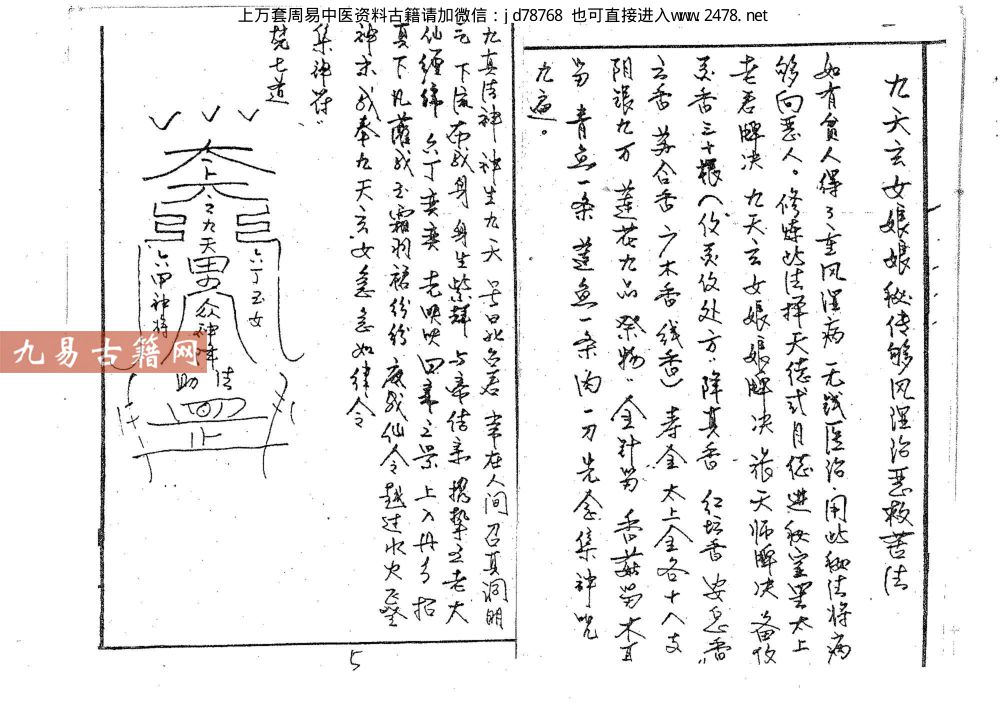 上万套周易中医资料古籍请加微信：jd78768 也可直接进入www.2478.net
九天玄女娘娘秘传够风湿治恶救苦法
如有贫人得了重风湿病 无钱医治 用此秘法将病
够向恶人。修炼此法择天德或月德进秘室里太上
老君解决 九天玄女娘娘解决 张天师解决 备仪
灵香三十根（仪灵仪处方"降真香 红坛香 安息香"
云香 苏合香 广木香 线香）寿金 太上金各十八支
阴银九万 莲花九品 祭物"金针 香菇 木耳
青鱼一条 莲鱼一条肉一刀先念集神咒
九遍。
九真法神 神生九天 号曰 君 常在人间召真洞明
元 下流布我身 身生紫 与帝结亲 携 五老大
仙 六丁奕奕 光 四章之景 上入丹 招
真下凡 我玉霜羽裙纷纷 度我仙令越过水火
神术我奉九天玄女急急如律令
集神符"
焚七道
六丁玉女
之九天
众神降
助法
六甲神将
正
九易古籍网
5